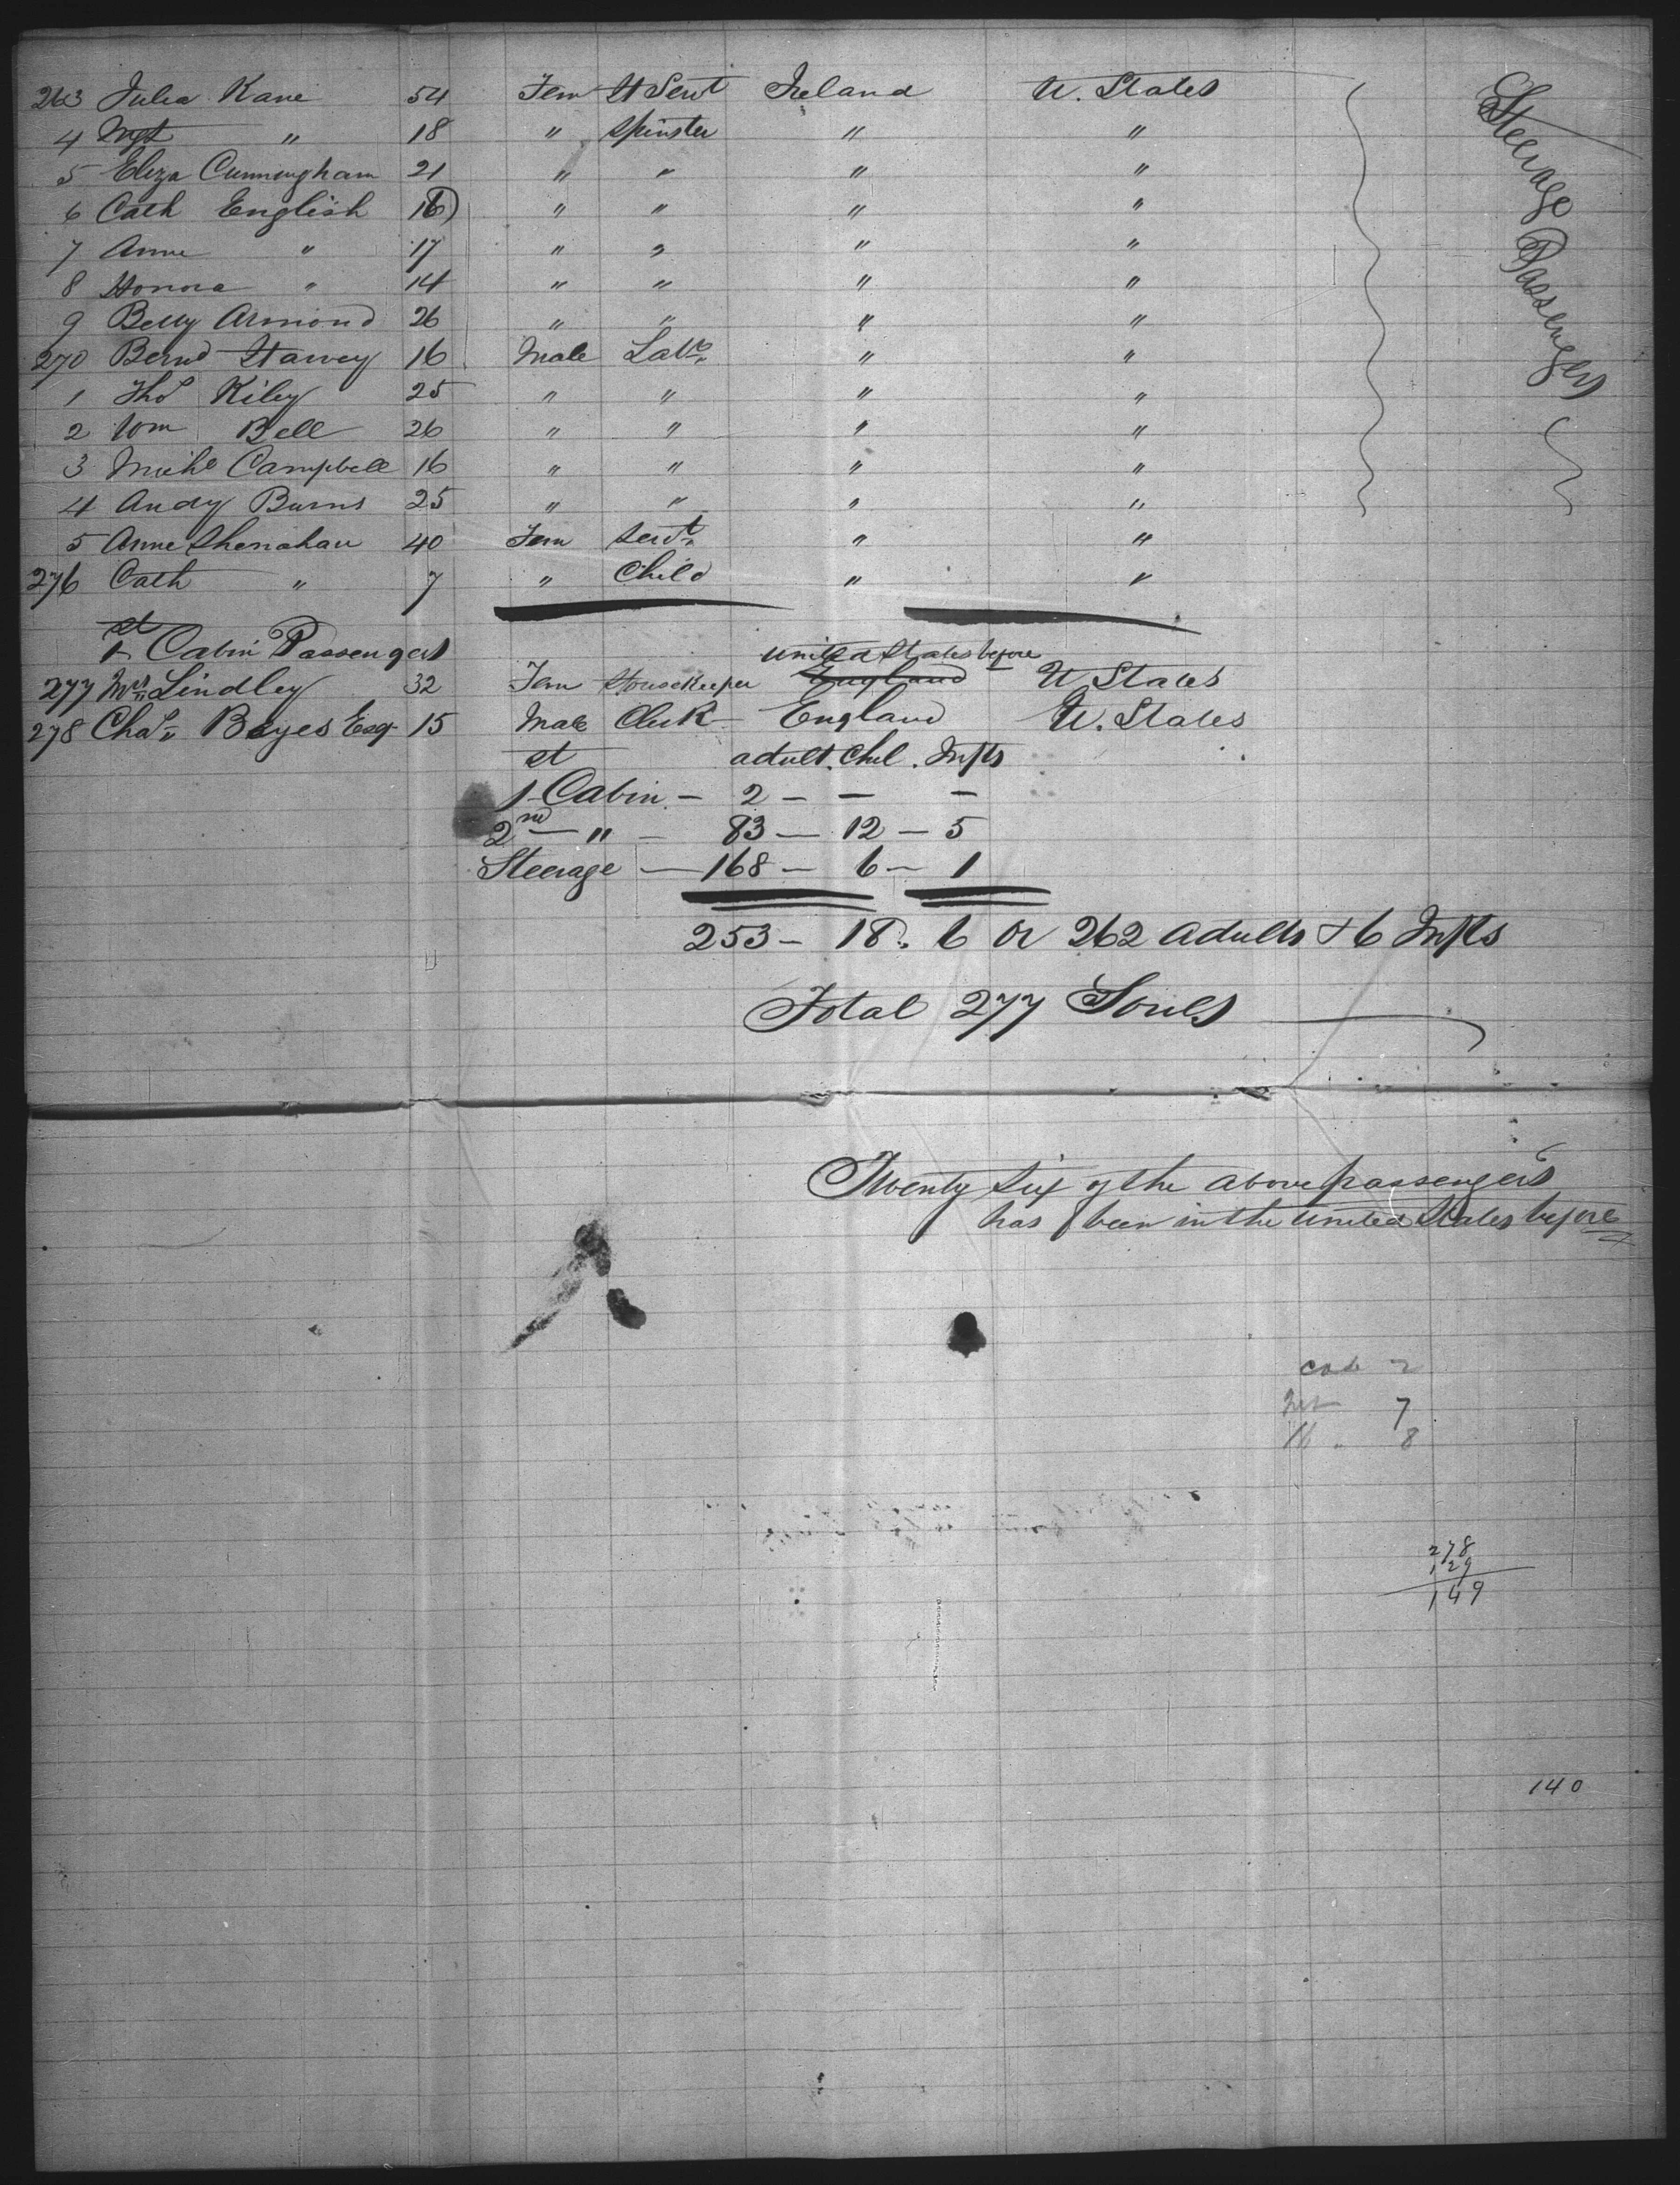 263 Julia Kane 54 Fem H Servt Ireland U. States
4 Mgt " 18 " Spinster " "
5 Eliza Cunningham 21 " " " "
6 Cath English 18 " " " "
7 Anne " 17 " " " "
8 Honora " 14 " " " "
9 Betty Armond 26 " " " "
270 Bernd Harvey 16 Male Labr " "
1 Thos Kiley 25 " " " "
2 Wm Bell 26 " " " "
3 Michl Campbell 16 " " " "
4 Andy Burns 25 " " " "
5 Anne Shenahan 40 Fem Servt " "
276 Cath " 7 " Child " "
Steerage Passengers
1st Cabin Passengers
United States before
277 Mrs Lindley 32 Fem Housekeeper England U States
278 Chas Bayes Esq 15 Male Clerk England U. States
adult. Chil. Infts
1st Cabin - 2 - - -
2nd - " - 83 - 12 - 5
Steerage - 168 - 6 - 1
253 - 18. 6 or 262 adults & 6 Infts
Total 277 Souls
Twenty Six of the above passengers
has been in the United States before
7
8
278
129
149
140